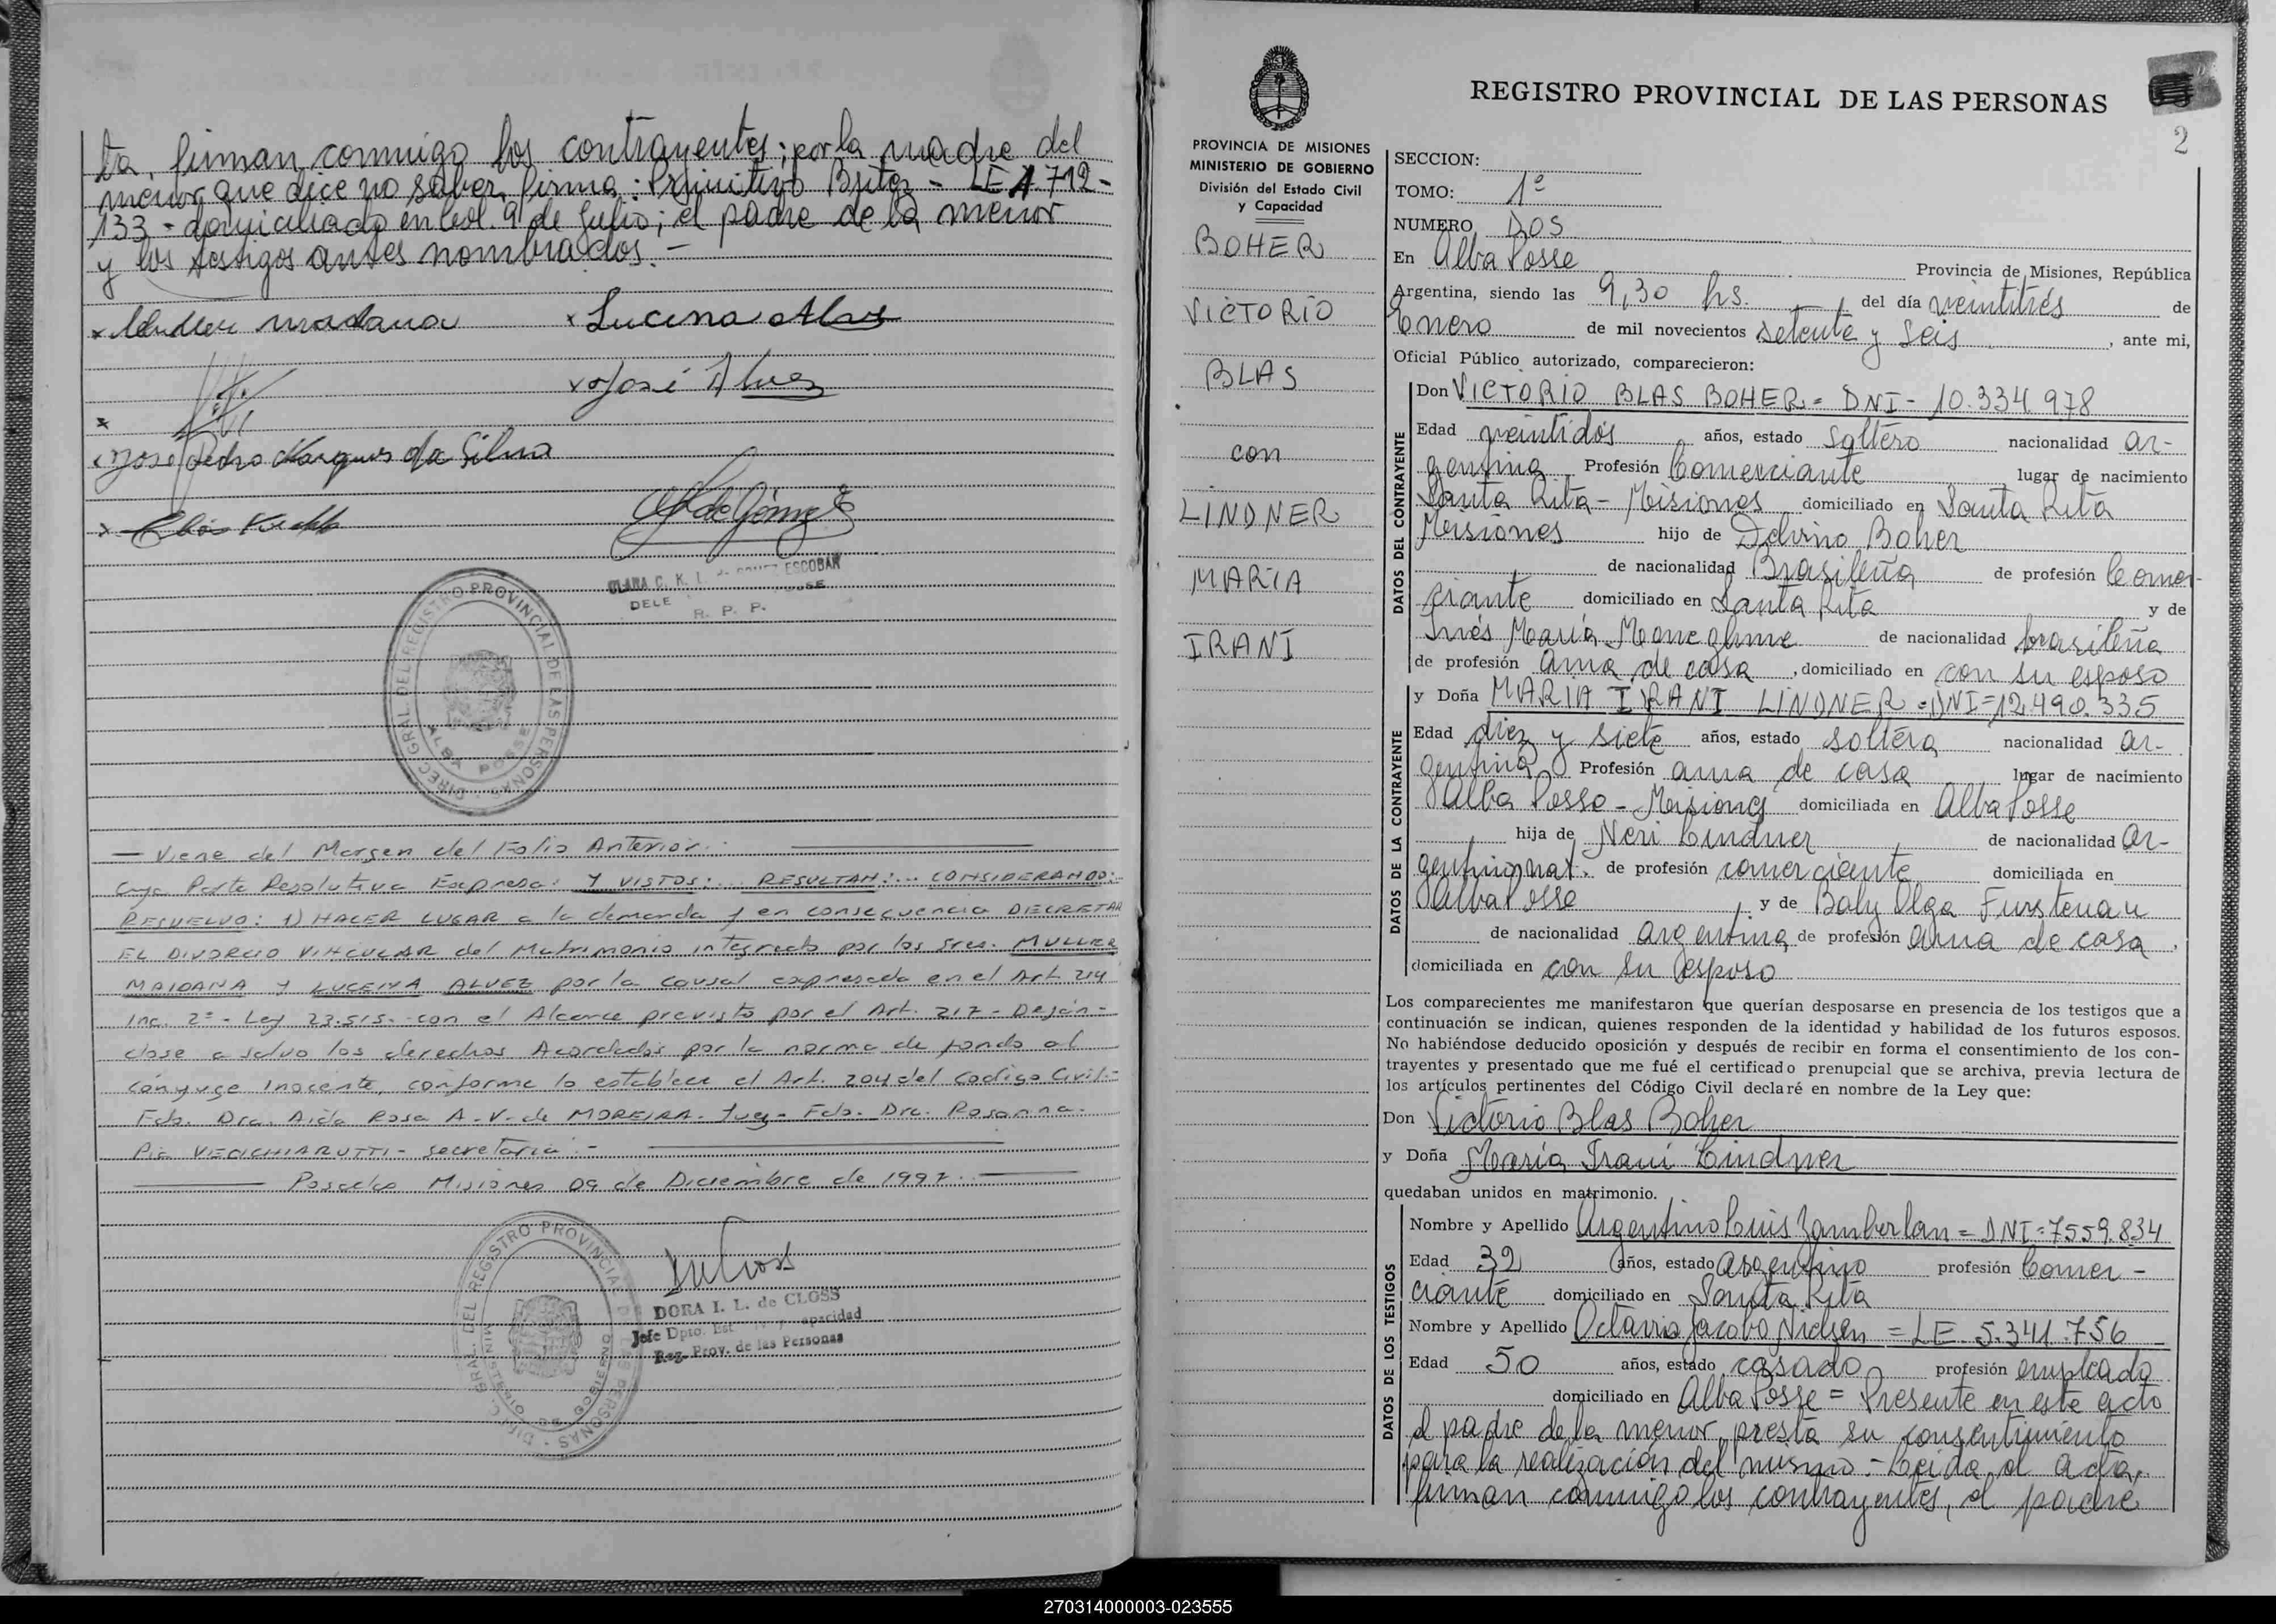 ta, firman conmigo los contrayentes; por la madre del
menor que dice no saber firmar: Primitivo Britez - LE 1712-
133 - domiciliado en Col. 9 de Julio; el padre de la menor
y los testigos antes nombrados. -
x Muller maidana x Lucena Alves
x José Alvez
x
x José Pedro Marques da Silva
x
DIREC. GRAL. DEL REGISTRO PROVINCIAL DE LAS PERSONAS
ALBA POSSE
CLARA C. K. L. ESCOBAR
DELE
R. P. P.
— Viene del Margen del Folio Anterior.-
cuya Parte Resolutiva Expresa: Y VISTOS:... RESULTAN:... CONSIDERANDO:-
RESUELVO: 1) HACER LUGAR a la demanda y en consecuencia DECRETAR
EL DIVORCIO VINCULAR del Matrimonio integrado por los Sres. MULLER
MAIDANA Y LUCENA ALVEZ por la causal expresada en el Art. 214
Inc. 2º - Ley 23.515.- con el Alcance previsto por el Art. 217 - Deján-
dose a salvo los derechos Acordados por la norma de fondo al
cónyuge Inocente, conforme lo establece el Art. 204 del Codigo Civil.-
Fdo. Dra. Aida Rosa A. V. de MOREIRA. Juez - Fdo. Dra. Rosanna
Pia VENCHIARUTTI - secretaria.-
Posadas Misiones 09 de Diciembre de 1997.-
DIREC. GRAL. DEL REGISTRO PROVINCIAL DE LAS PERSONAS
MINISTERIO DE GOBIERNO
DORA I. L. de CLOSS
Jefe Dpto. Est y apacidad
Reg. Prov. de las Personas
REGISTRO PROVINCIAL DE LAS PERSONAS
2
PROVINCIA DE MISIONES
MINISTERIO DE GOBIERNO
División del Estado Civil
y Capacidad
BOHER
VICTORIO
BLAS
con
LINDNER
MARIA
IRANI
SECCION:
TOMO: 1º
NUMERO DOS
En Alba Posse Provincia de Misiones, República
Argentina, siendo las 9,30 hs. del día veintitrés de
Enero de mil novecientos setenta y seis, ante mi,
Oficial Público autorizado, comparecieron:
DATOS DEL CONTRAYENTE
Don VICTORIO BLAS BOHER = DNI - 10.334.978
Edad veintidós años, estado soltero nacionalidad ar-
gentina Profesión Comerciante lugar de nacimiento
Santa Rita - Misiones domiciliado en Santa Rita
Misiones hijo de Delvino Boher
de nacionalidad Brasileña de profesión Comer-
ciante domiciliado en Santa Rita y de
Inés María Meneghine de nacionalidad brasileña
de profesión ama de casa, domiciliado en con su esposo
DATOS DE LA CONTRAYENTE
y Doña MARIA IRANI LINDNER = DNI = 12.490.335
Edad diez y siete años, estado soltera nacionalidad ar-
gentina Profesión ama de casa lugar de nacimiento
Alba Posse - Misiones domiciliada en Alba Posse
hija de Neri Lindner de nacionalidad ar-
gentino nat. de profesión comerciante domiciliada en
Alba Posse y de Baly Olga Furstenau
de nacionalidad argentina de profesión ama de casa,
domiciliada en con su esposo
Los comparecientes me manifestaron que querían desposarse en presencia de los testigos que a
continuación se indican, quienes responden de la identidad y habilidad de los futuros esposos.
No habiéndose deducido oposición y después de recibir en forma el consentimiento de los con-
trayentes y presentado que me fué el certificado prenupcial que se archiva, previa lectura de
los artículos pertinentes del Código Civil declaré en nombre de la Ley que:
Don Victorio Blas Boher
y Doña María Irani Lindner
quedaban unidos en matrimonio.
DATOS DE LOS TESTIGOS
Nombre y Apellido Argentino Luis Zamberlan = DNI = 7.559.834
Edad 32 años, estado argentino profesión Comer-
ciante domiciliado en Santa Rita
Nombre y Apellido Octavio Jacobo Nielsen = LE. 5.341.756
Edad 50 años, estado casado profesión empleado
domiciliado en Alba Posse = Presente en este acto
el padre de la menor, presta su consentimiento
para la realización del mismo. - Leida el acta,
firman conmigo los contrayentes, el padre
270314000003-023555